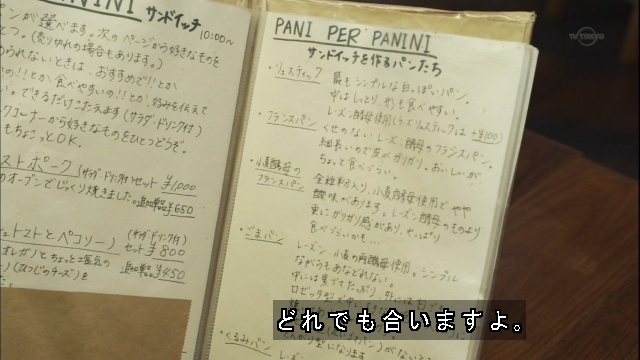 PANINI サンドイッチ
10:00〜
パンが選べます。次のページから好きなものを
(売り切れの場合もあります。)
られないときは、おすすめで!!とか
いの!!とか食べやすいの!!とか、好みを伝えて
い。できるだけこたえます(サラダ・ドリンク付)
クコーナーから好きなものをひとつどうぞ。
もちょこっとOK。
ストポーク (サラダ・ドリンク付)セット ¥1,000
のオーブンでじっくり焼きました。追加単品¥650
トマトとペコリーノ (サラダ・ドリンク付)
セット ¥800
オレガノとちょっと塩気の
(ひつじのチーズ)を
追加単品¥450
PANI PER PANINI
サンドイッチを作るパンたち
・リュスティック 最もシンプルな白っぽいパン。
中はしっとり、約も食べやすい。
レーズン酵母使用(チーズリュスティックは+¥100)
・フランスパン くせのないレーズン酵母のフランスパン。
細長いので皮がガリガリ。おいしいが
ちょっと食べづらい。
・小麦酵母の
フランスパン
全粒粉入り、小麦酵母使用でやや
酸味があります。レーズン酵母のものより
更にガリガリ感があり、やっぱり
食べづらいかも…
・ごまパン レーズン、小麦の両酵母使用。シンプル
ながらもあなどれない。
中には黒ゴマたっぷり、外には白ゴマ
ロゼッタ型で
・くるみパン レーズン
どれでも合いますよ。
TV TOKYO